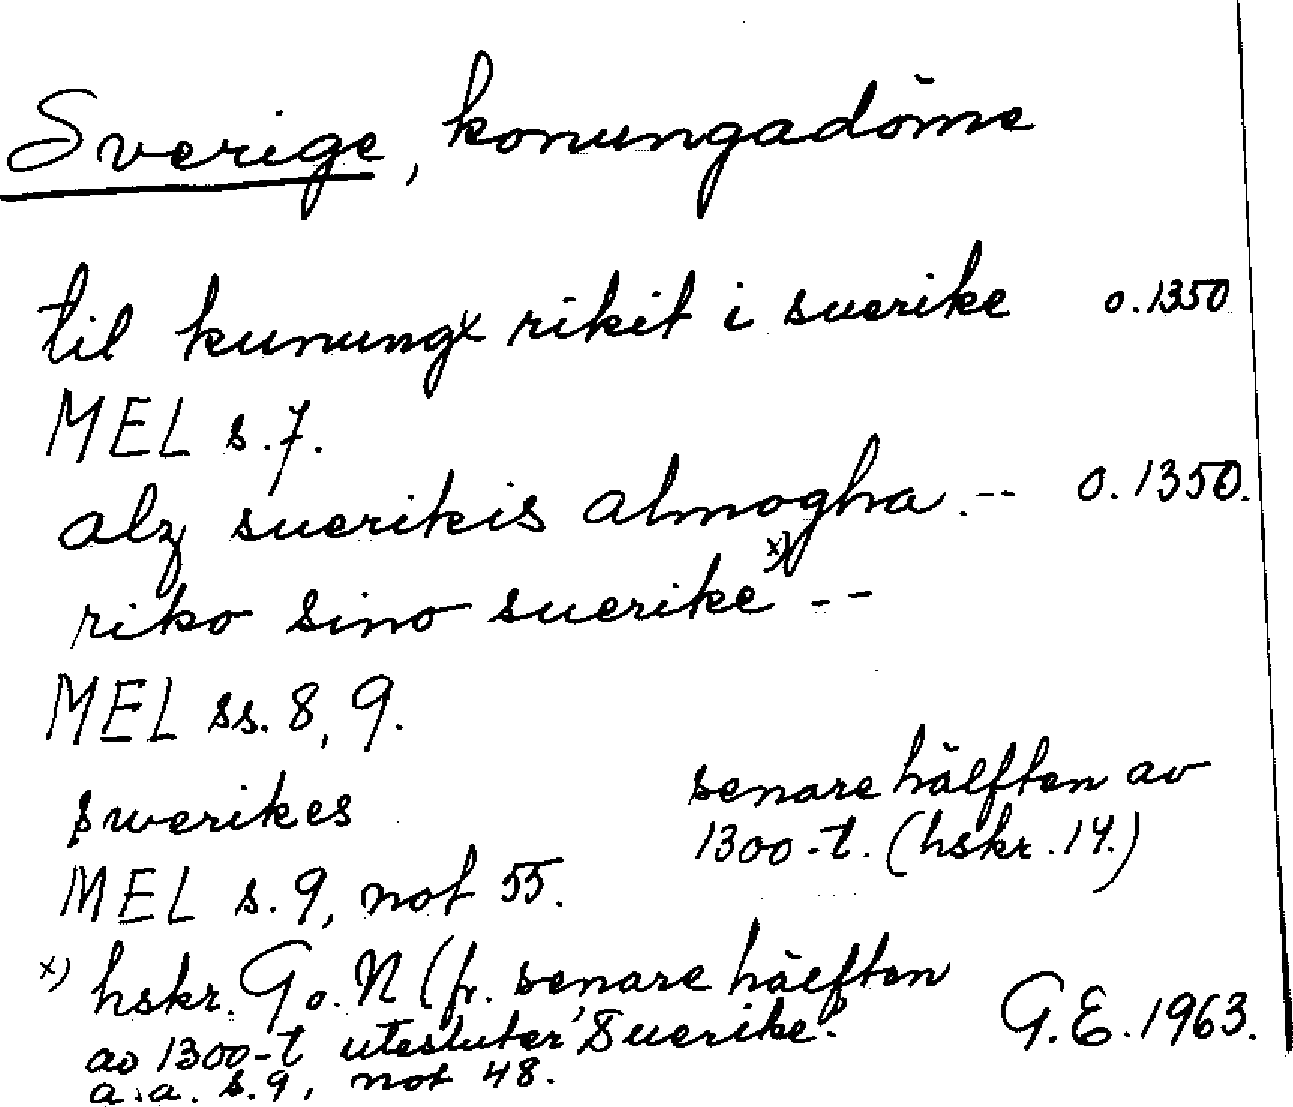 Sverige, konungadöme
til kunungx rikit i suerike o. 1350
MEL s. 7.
alz suerikis almogha. -- o. 1350.
riko sino suerike x) --
MEL ss. 8, 9.
swerikes senare hälften av
1300-t. (hskr. 14.)
MEL s. 9, not 55.
x) hskr. G o. N (fr. senare hälften
av 1300-t utesluter "Suerike".
a.a. s. 9, not 48.
G.E. 1963.